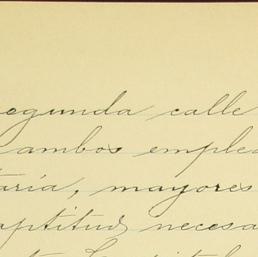 segunda calle
ambos emple
taria, mayores
aptitud necesa